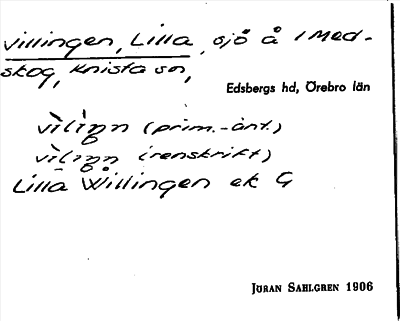 Villingen, Lilla, sjö å i Med-
skog, Knista sn,
Edsbergs hd, Örebro län
(prim.-ant.)
(renskrift)
Lilla Wållingen ek G
JÖRAN SAHLGREN 1906